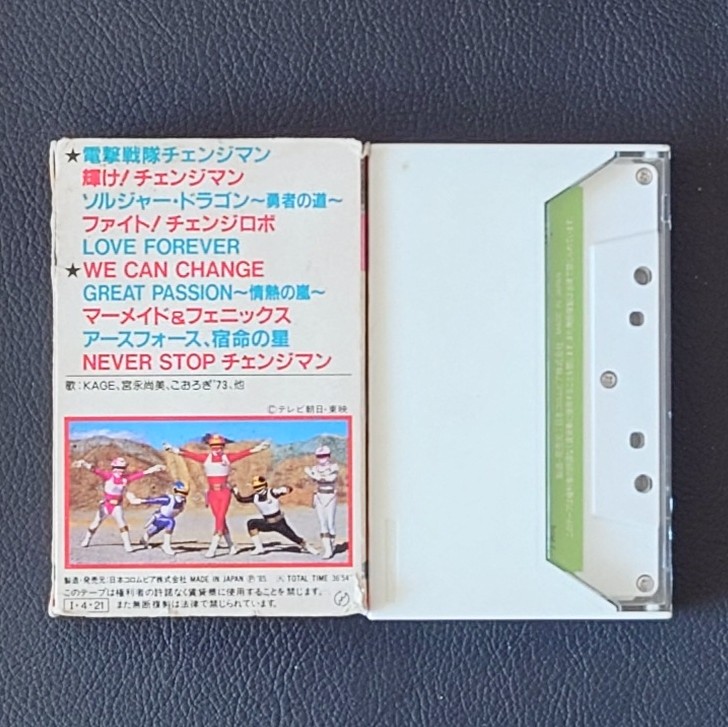 ★電撃戦隊チェンジマン
輝け!チェンジマン
ソルジャー・ドラゴン〜勇者の道〜
ファイト!チェンジロボ
LOVE FOREVER
★WE CAN CHANGE
GREAT PASSION〜情熱の嵐〜
マーメイド&フェニックス
アースフォース、宿命の星
NEVER STOP チェンジマン
歌:KAGE、宮永尚美、こおろぎ'73、他
©テレビ朝日・東映
製造・発売元:日本コロムビア株式会社 MADE IN JAPAN Ⓟ'85 Ⓚ TOTAL TIME 36'54"
このテープは権利者の許諾なく賃貸業に使用することを禁じます。
I・4・21 また無断複製は法律で禁じられています。